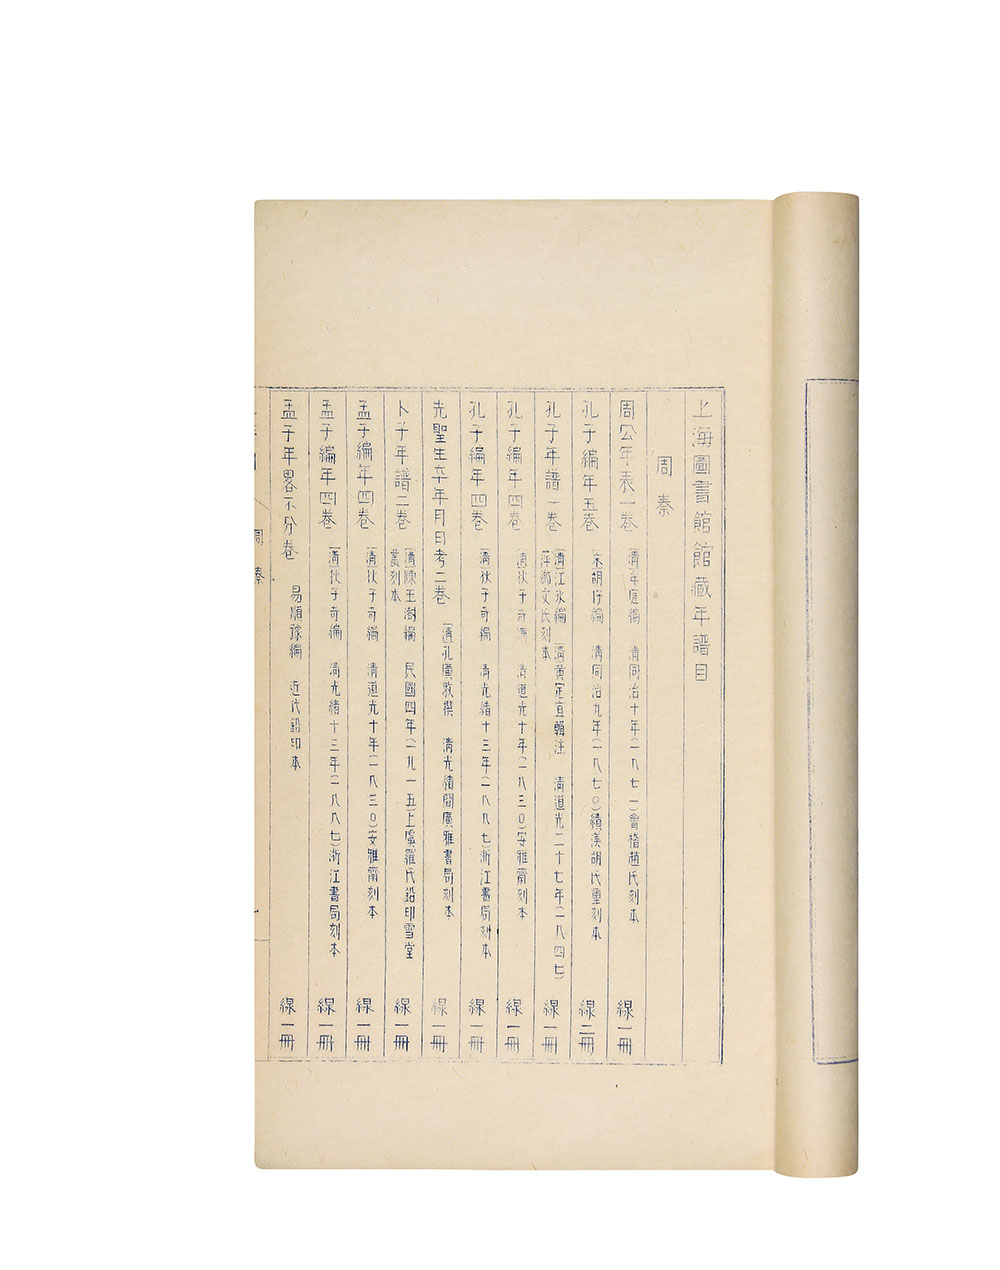 上海圖書館館藏年譜目
周秦
周公年表一卷 [清]牟庭編 清同治十年(一八七一)會稽趙氏刻本 線一冊
孔子編年五卷 [宋]胡仔編 清同治九年(一八七〇)績溪胡氏重刻本 線二冊
孔子年譜一卷 [清]江永編 [清]黃定宜輯注 清道光二十七年(一八四七)萍鄉文氏刻本 線一冊
孔子編年四卷 [清]狄子奇編 清道光十年(一八三〇)安雅齋刻本 線一冊
孔子編年四卷 [清]狄子奇編 清光緒十三年(一八八七)浙江書局刻本 線一冊
先聖生卒年月日考二卷 [清]孔廣牧撰 清光緒間廣雅書局刻本 線一冊
卜子年譜二卷 [清]陳玉澍編 民國四年(一九一五)上虞羅氏鉛印雪堂叢刻本 線一冊
孟子編年四卷 [清]狄子奇編 清道光十年(一八三〇)安雅齋刻本 線一冊
孟子編年四卷 [清]狄子奇編 清光緒十三年(一八八七)浙江書局刻本 線一冊
孟子年畧不分卷 易順豫編 近代鉛印本 線一冊
周秦